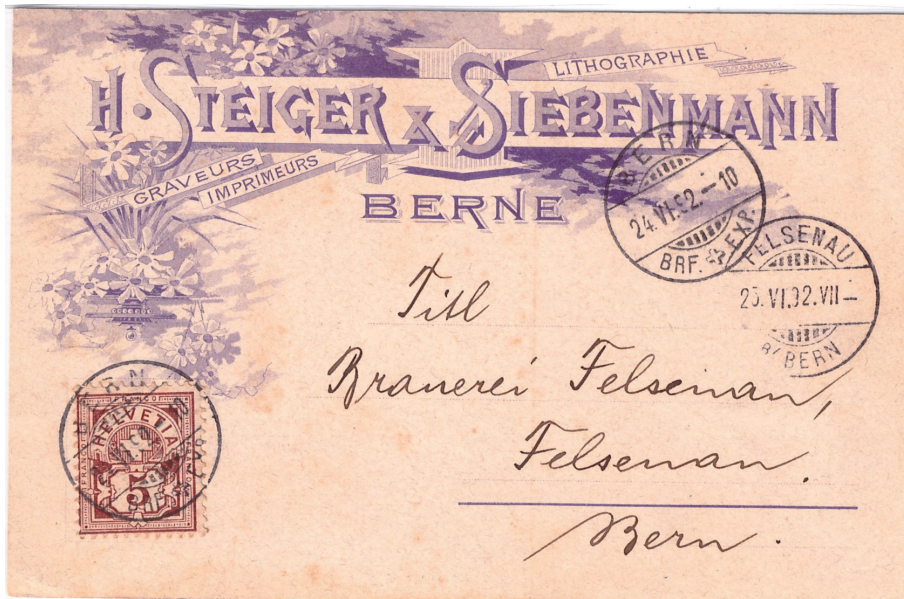 LITHOGRAPHIE
H. STEIGER & SIEBENMANN
GRAVEURS
IMPRIMEURS
BERNE
BERN
24.VI.92.-10
BRF. EXP.
FELSENAU
25.VI.92.VII-
B/BERN
Titl
Brauerei Felsenau,
Felsenau.
Bern.
BERN
HELVETIA
5